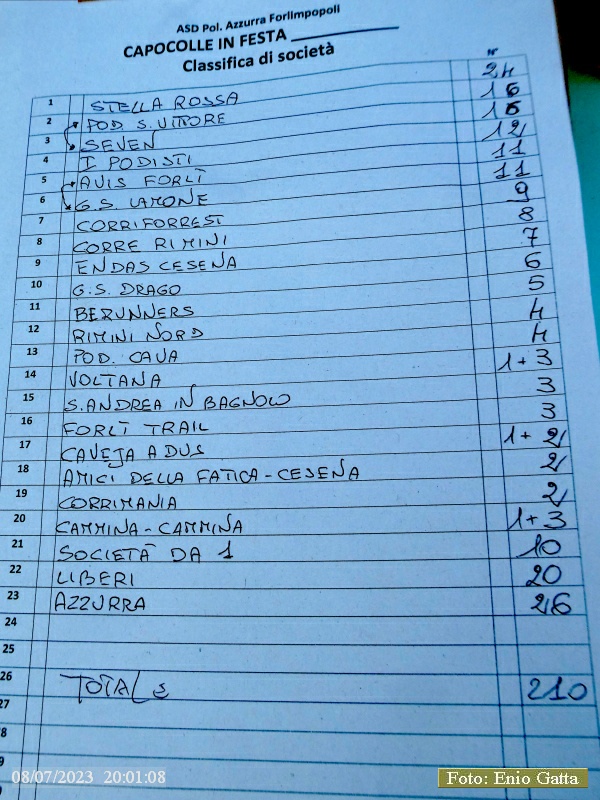 ASD Pol. Azzurra Forlimpopoli
CAPOCOLLE IN FESTA ____________
Classifica di società
nr
1 STELLA ROSSA 24
2 POD. S. VITTORE 16
3 SEVEN 16
4 I PODISTI 12
5 AVIS FORLÌ 11
6 G.S. LAMONE 11
7 CORRIFORREST 9
8 CORRE RIMINI 8
9 ENDAS CESENA 7
10 G.S. DRAGO 6
11 BERUNNERS 5
12 RIMINI NORD 4
13 POD. CAVA 4
14 VOLTANA 1+3
15 S. ANDREA IN BAGNOLO 3
16 FORLÌ TRAIL 3
17 CAVEJA ADUS 1+2
18 AMICI DELLA FATICA-CESENA 2
19 CORRIMANIA 2
20 CAMMINA-CAMMINA 1+3
21 SOCIETÀ DA 1 10
22 LIBERI 20
23 AZZURRA 26
24
25
26 TOTALE 210
27
8
9
08/07/2023 20:01:08
Foto: Enio Gatta